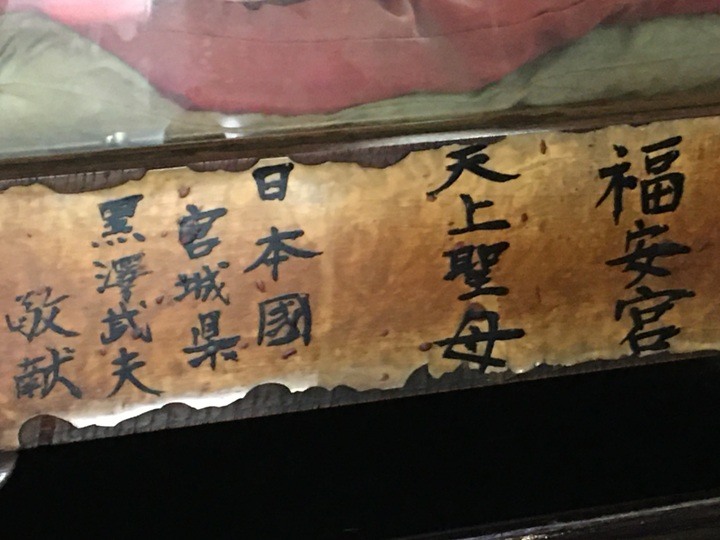 福安宮
天上聖母
日本國
宮城県
黑澤武夫
敬献